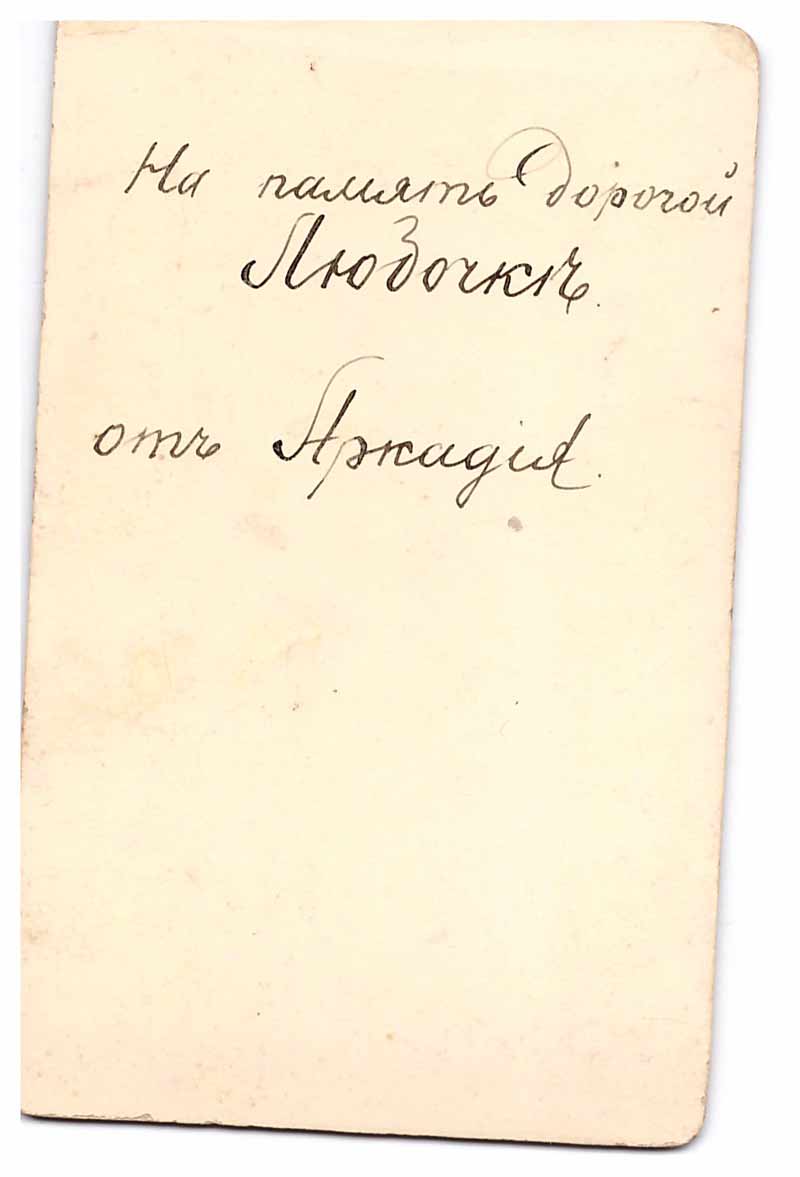 На память дорогой
Людочкѣ.
отъ Аркадія.